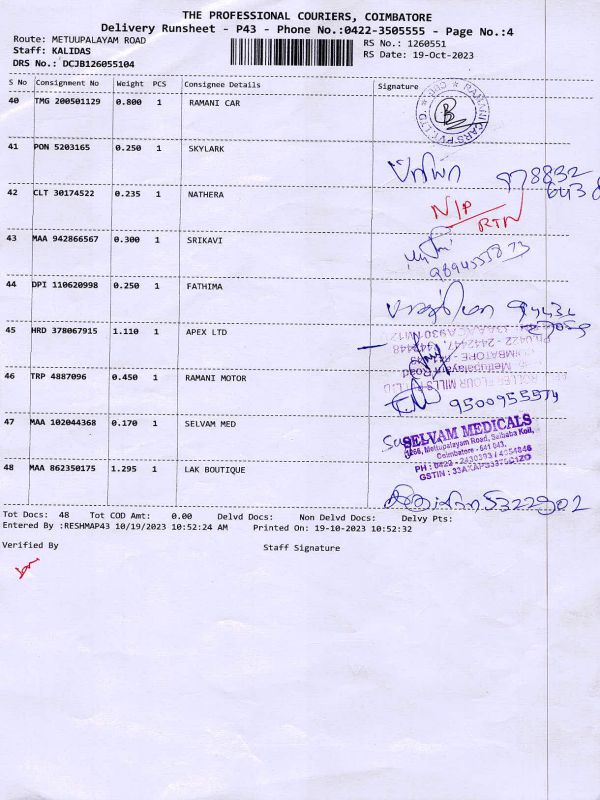 THE PROFESSIONAL COURIERS, COIMBATORE
Delivery Runsheet - P43 - Phone No.:0422-3505555 - Page No.:4
Route: METUUPALAYAM ROAD
RS No.: 1260551
Staff: KALIDAS
RS Date: 19-Oct-2023
DRS No.: DCJB126055104
S No Consignment No Weight PCS Consignee Details Signature
40 TMG 200501129 0.800 1 RAMANI CAR
RAMANI CARS PVT. LTD.
41 PON 5203165 0.250 1 SKYLARK
42 CLT 30174522 0.235 1 NATHERA
N/P
RTN
43 MAA 942866567 0.300 1 SRIKAVI
44 DPI 110620998 0.250 1 FATHIMA
45 HRD 378067915 1.110 1 APEX LTD
46 TRP 4887096 0.450 1 RAMANI MOTOR
9500955574
47 MAA 102044368 0.170 1 SELVAM MED
SELVAM MEDICALS
Mettupalayam Road, Saibaba Koil,
Coimbatore - 641 043.
48 MAA 862350175 1.295 1 LAK BOUTIQUE
5322902
Tot Docs: 48 Tot COD Amt: 0.00 Delvd Docs: Non Delvd Docs: Delvy Pts:
Entered By :RESHMAP43 10/19/2023 10:52:24 AM Printed On: 19-10-2023 10:52:32
Verified By Staff Signature